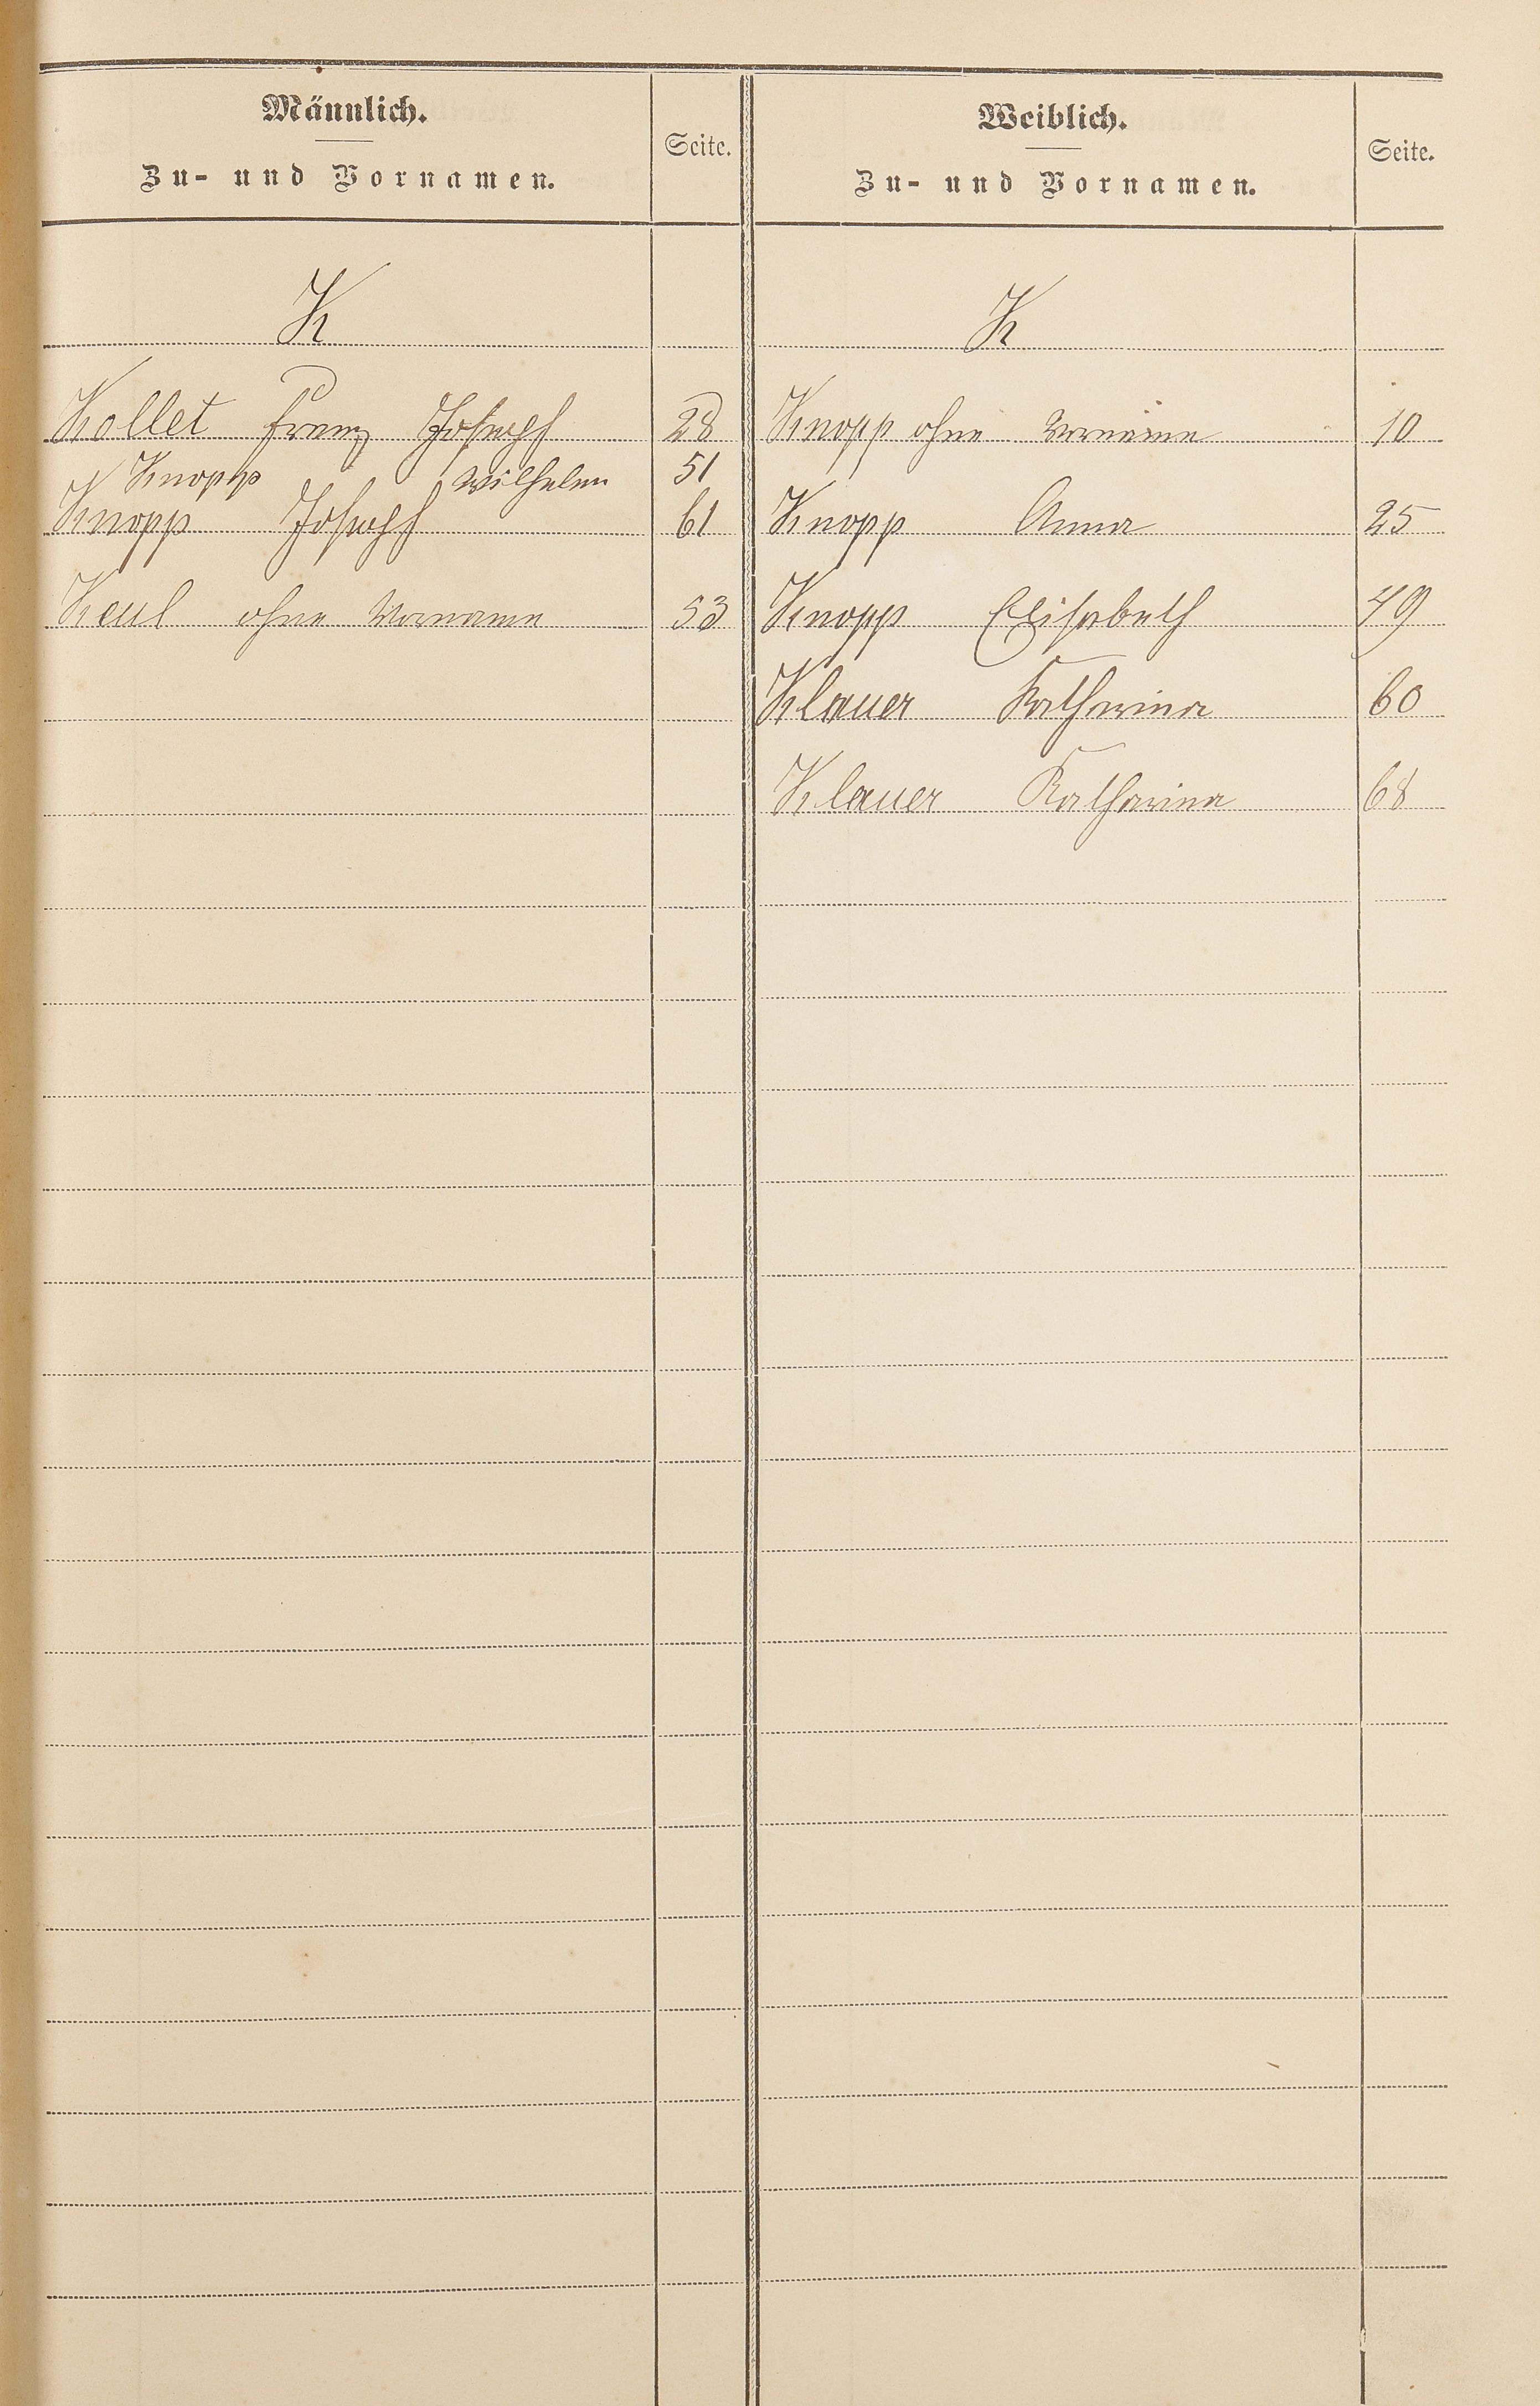 Männlich.
Zu- und Vornamen.
Seite.
K
Kollet Franz Joseph 28
Knopp Wilhelm 51
Knopp Joseph 61
Keul ohne Vorname 53
Weiblich.
Zu- und Vornamen.
Seite.
K
Knopp ohne Vorname 10
Knopp Anna 25
Knopp Elisabeth 49
Klauer Katharina 60
Klauer Katharina 68